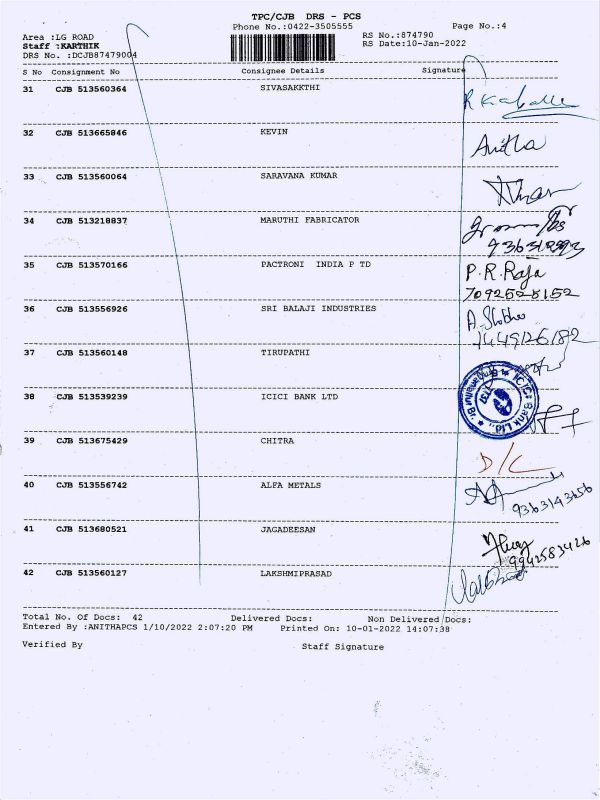 TPC/CJB DRS - PCS
Phone No.:0422-3505555 Page No.:4
Area :LG ROAD RS No.:874790
Staff :KARTHIK RS Date:10-Jan-2022
DRS No. :DCJB87479004
S No Consignment No Consignee Details Signature
31 CJB 513560364 SIVASAKKTHI
32 CJB 513665846 KEVIN
Anitha
33 CJB 513560064 SARAVANA KUMAR
34 CJB 513218837 MARUTHI FABRICATOR
35 CJB 513570166 PACTRONI INDIA P TD
P.R.Raja
7092528152
36 CJB 513556926 SRI BALAJI INDUSTRIES
37 CJB 513560148 TIRUPATHI
38 CJB 513539239 ICICI BANK LTD
ICICI Bank Ltd.,
39 CJB 513675429 CHITRA
D/C
40 CJB 513556742 ALFA METALS
9363143656
41 CJB 513680521 JAGADEESAN
9942583426
42 CJB 513560127 LAKSHMIPRASAD
Total No. Of Docs: 42 Delivered Docs: Non Delivered Docs:
Entered By :ANITHAPCS 1/10/2022 2:07:20 PM Printed On: 10-01-2022 14:07:38
Verified By Staff Signature